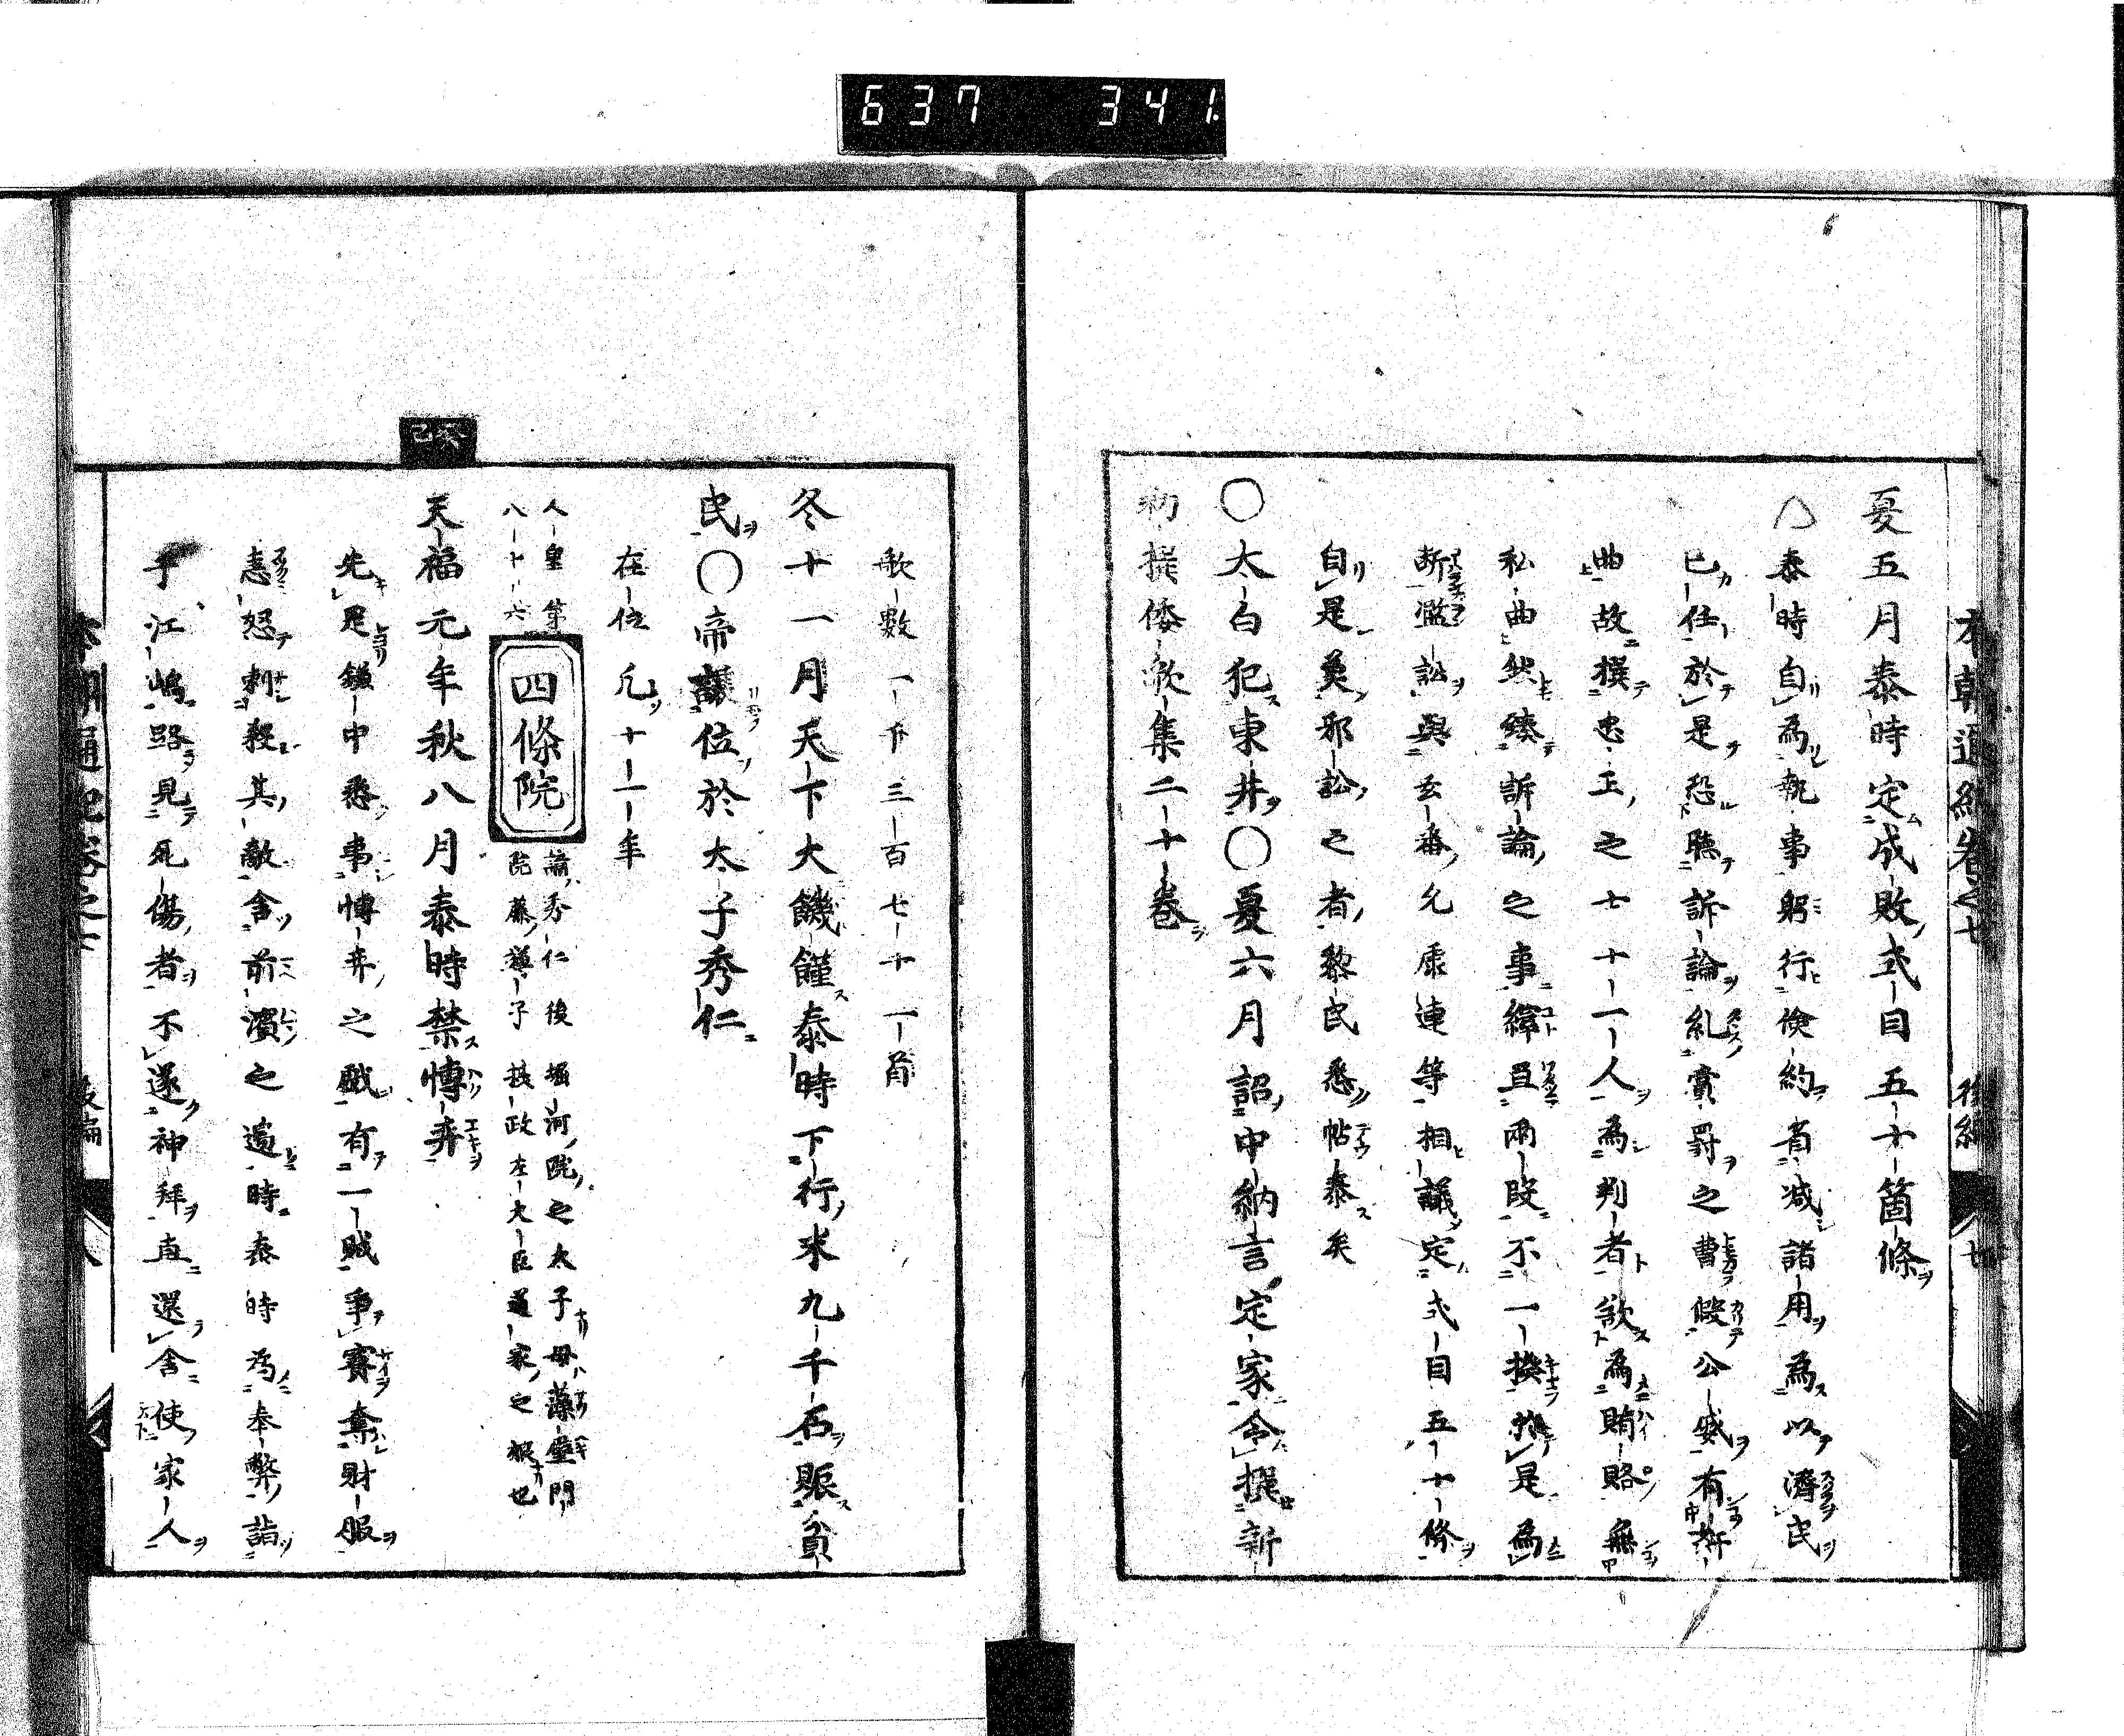 637 341
本朝通紀卷之七 後編 七
夏五月泰時定成敗式目五十箇條
泰時自為執事躬行儉約省減諸用為以濟民
已任於是恐聽訴論糺賞罰之曹假公威有奸
曲故撰忠正之士十一人為判者欲為賄賂無
私曲然緣訴論之事繹且兩段不一揆於是為
斷濫訟與玄番允康連等相議定式目五十條
自是奠邪訟之者黎民悉帖泰矣
〇太白犯東井〇夏六月詔中納言定家令撰新
勅撰倭歌集二十卷
歌數一千三百七十一首
冬十一月天下大饑饉泰時下行米九千石賑貧
民〇帝讓位於太子秀仁
在位凡十一年
人皇第
八十六
四條院
諱秀仁後堀河院之太子母藻璧門
院藤䕃子摂政左大臣道家之娘也
癸巳
天福元年秋八月泰時禁博奕
先是鎌中悉事博奕之戲有一賊爭賽奪財服
恚怒刺殺其敵舍前濱之邊時泰時為奉弊詣
于江嶋路見死傷者不遂神拜直還舍使家人
本朝通紀卷之七 後編 八